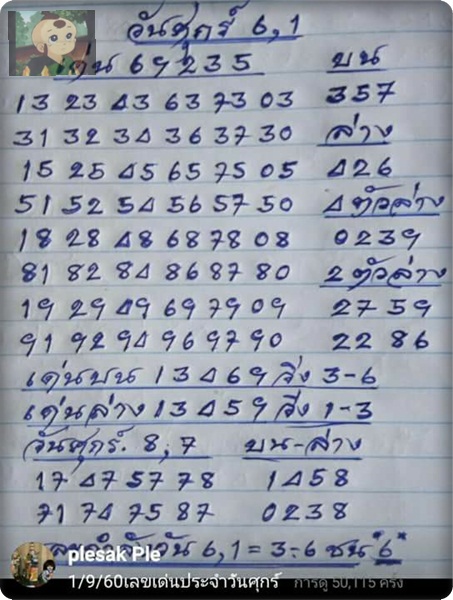 วันศุกร์ 6,1
เด่น 69235 บน
13 23 43 63 73 03 357
31 32 34 36 37 30 ล่าง
15 25 45 65 75 05 426
51 52 54 56 57 50 4 ตัวล่าง
18 28 48 68 78 08 0239
81 82 84 86 87 80 2 ตัวล่าง
19 29 49 69 79 09 27 59
91 92 94 96 97 90 22 86
เด่นบน 13469 วิ่ง 3-6
เด่นล่าง 13459 วิ่ง 1-3
วันศุกร์. 8,7 บน-ล่าง
17 47 57 78 1458
71 74 75 87 0238
วัน 6,1 = 3-6 ชน "6"
plesak Ple
1/9/60เลขเด่นประจำวันศุกร์ การดู 50,115 ครั้ง